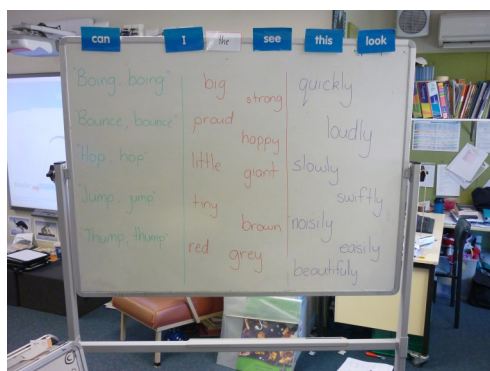 can I the see this look
"Boing, boing"
"Bounce, bounce"
"Hop, hop"
"Jump, jump"
"Thump, thump"
big
strong
proud
happy
little
giant
tiny
brown
red
grey
quickly
loudly
slowly
swiftly
noisily
easily
beautifuly